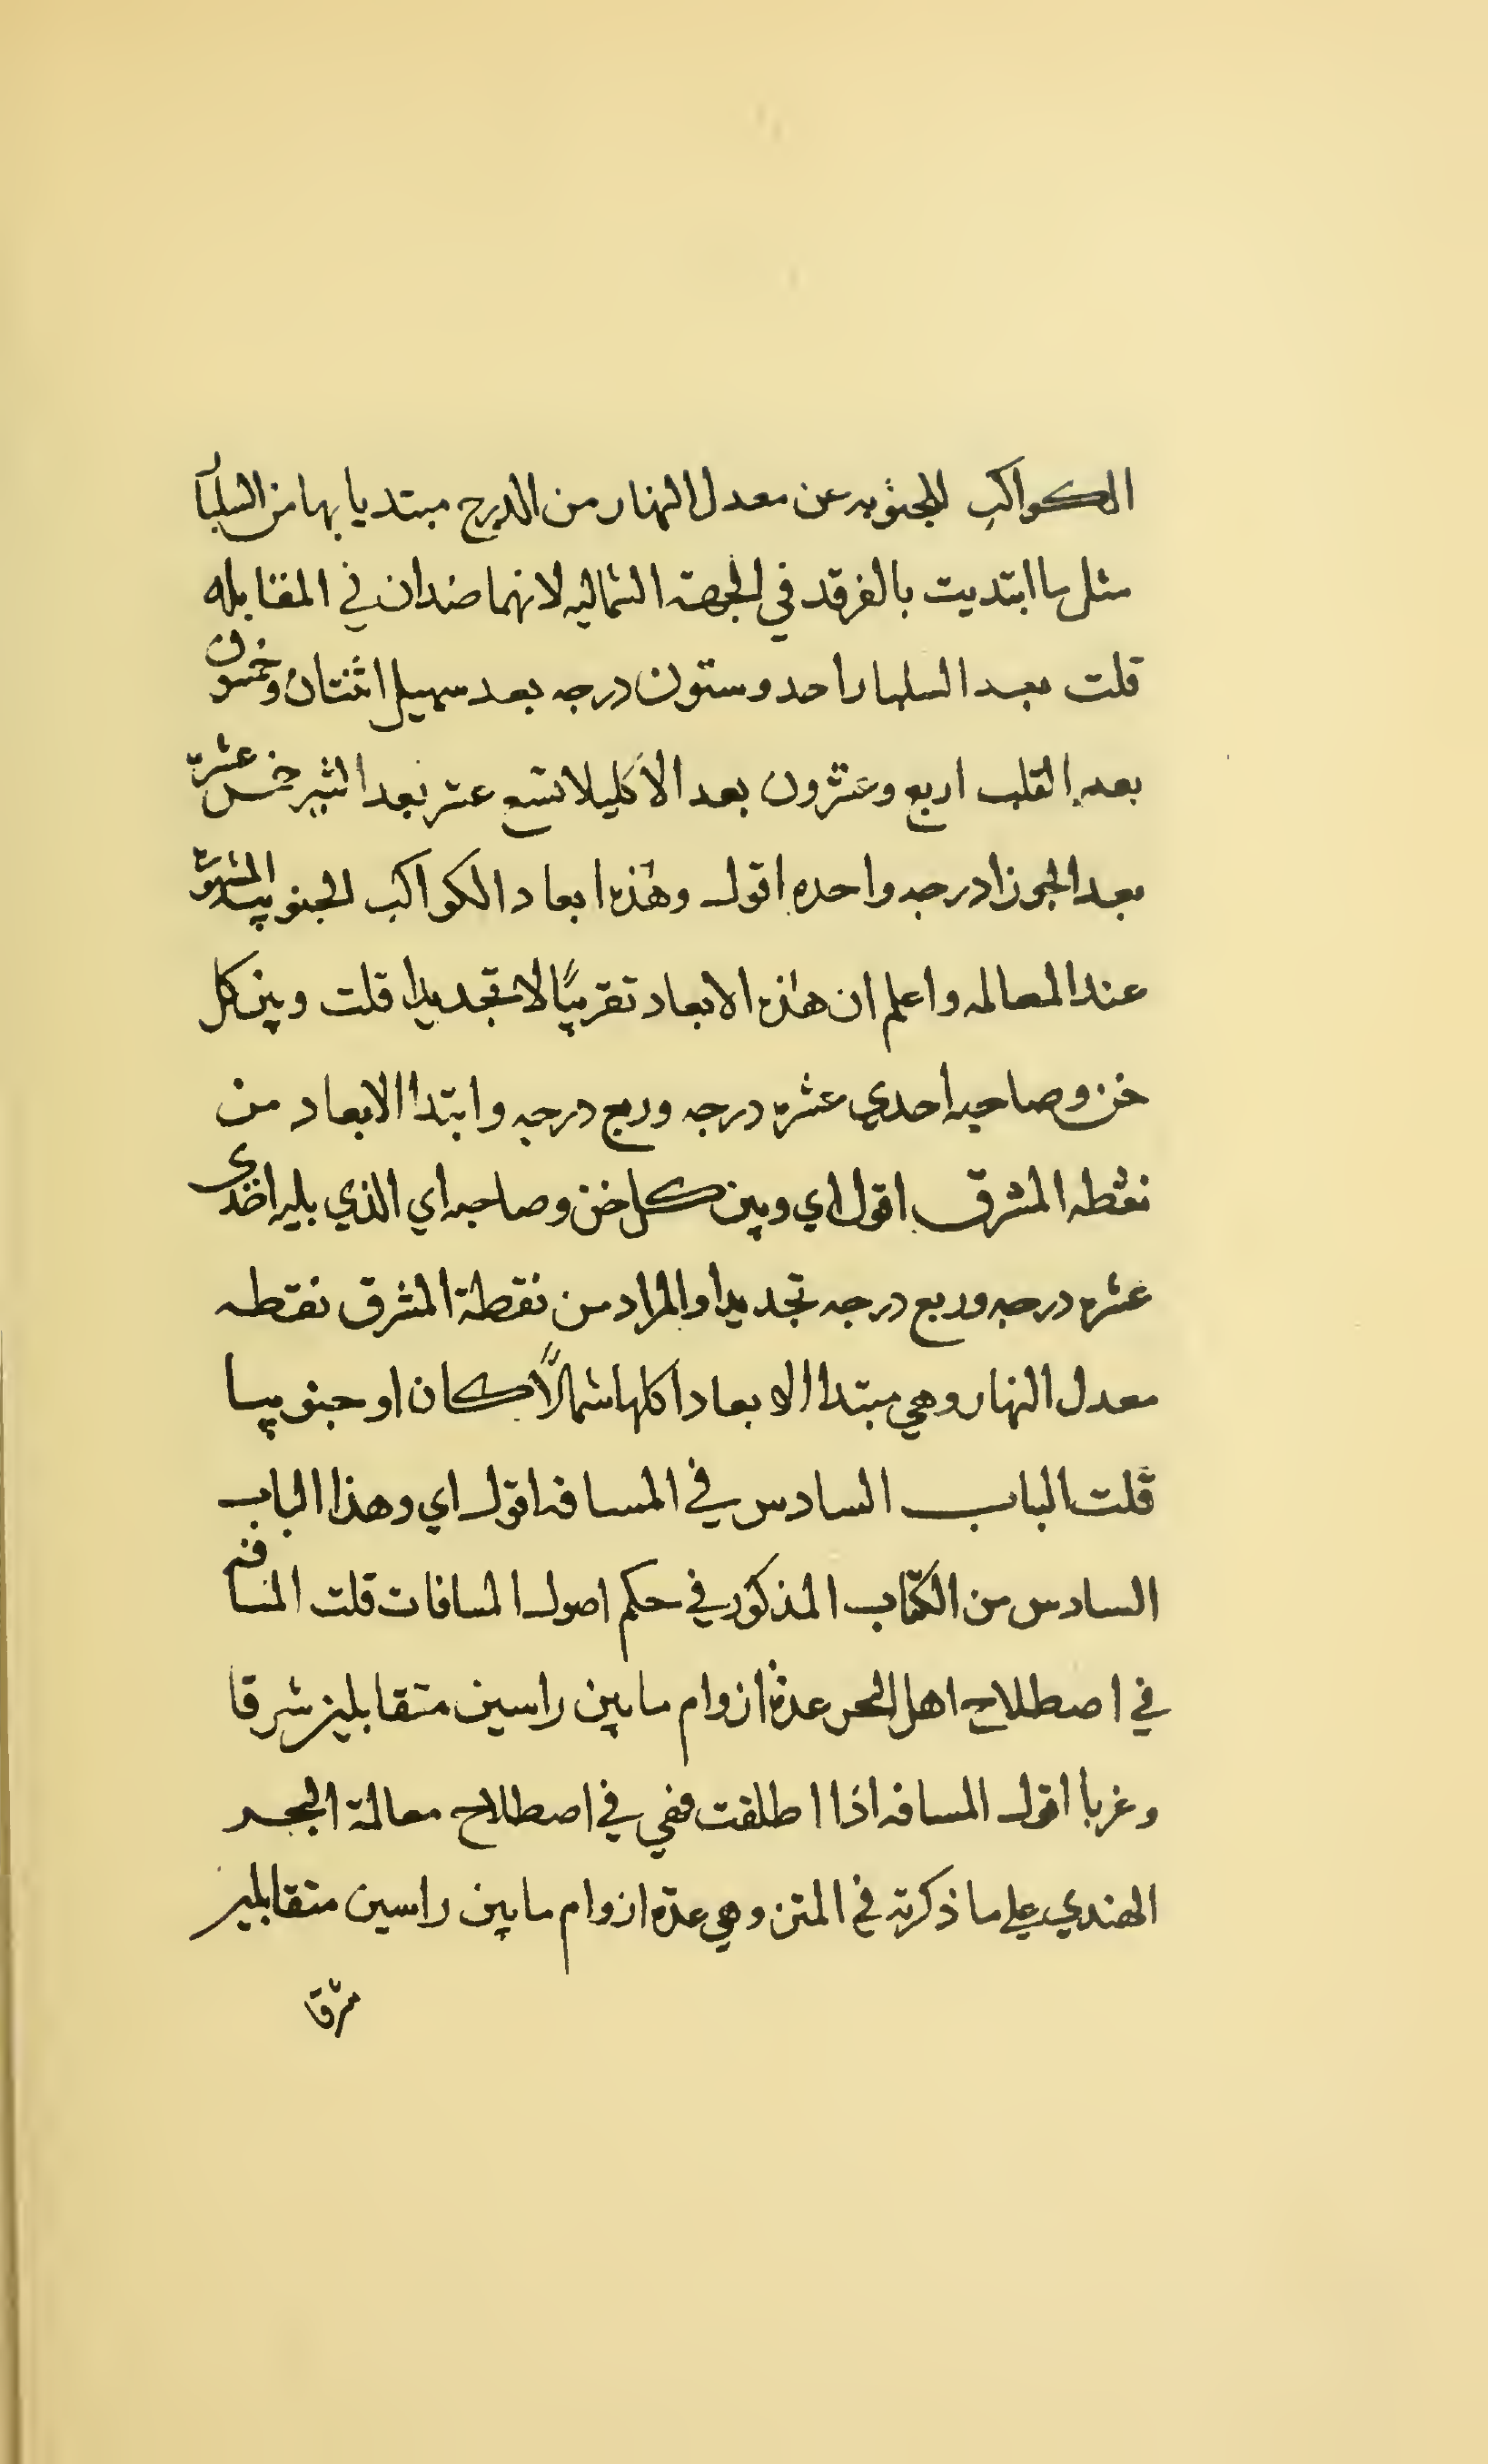 الكواكب الجنوبيه عن معدل النهار من الدرج مبتديا بها من السلبار
مثل ما ابتديت بالفرقد في الجهة الشماليه لانهما ضدان في المقابله
قلت بعد السلبار احد وستون درجه بعد سهيل اثنتان وخمسون
بعد القلب اربع وعشرون بعد الاكليل تسع عشر بعد التير خمس عشرة
بعد الجوزا درجه واحده اقول وهذه ابعاد الكواكب الجنوبيه المشهورة
عند المعالمه واعلم ان هذه الابعاد تقريبًا لا تحديدا قلت وبين كل
خن وصاحبه احدي عشره درجه وربع درجه وابتدا الابعاد من
نقطه المشرق اقول اي وبين كل خن وصاحبه اي الذي يليه احدى
عشره درجه وربع درجه تحديدا والمراد من نقطة المشرق نقطه
معدل النهار وهي مبتدا الابعاد كلها شمالًا كان او جنوبيا
قلت الباب السادس في المسافه اقول اي وهذا الباب
السادس من الكتاب المذكور في حكم اصول المسافات قلت المسافه
في اصطلاح اهل البحر عدة ازوام ما بين راسين متقابلين شرقا
وغربا اقول المسافه اذا اطلقت فهي في اصطلاح معالمة البحر
الهندي علي ما ذكرته في المتن وهي عدّة ازوام ما بين راسين متقابلين
شرقا